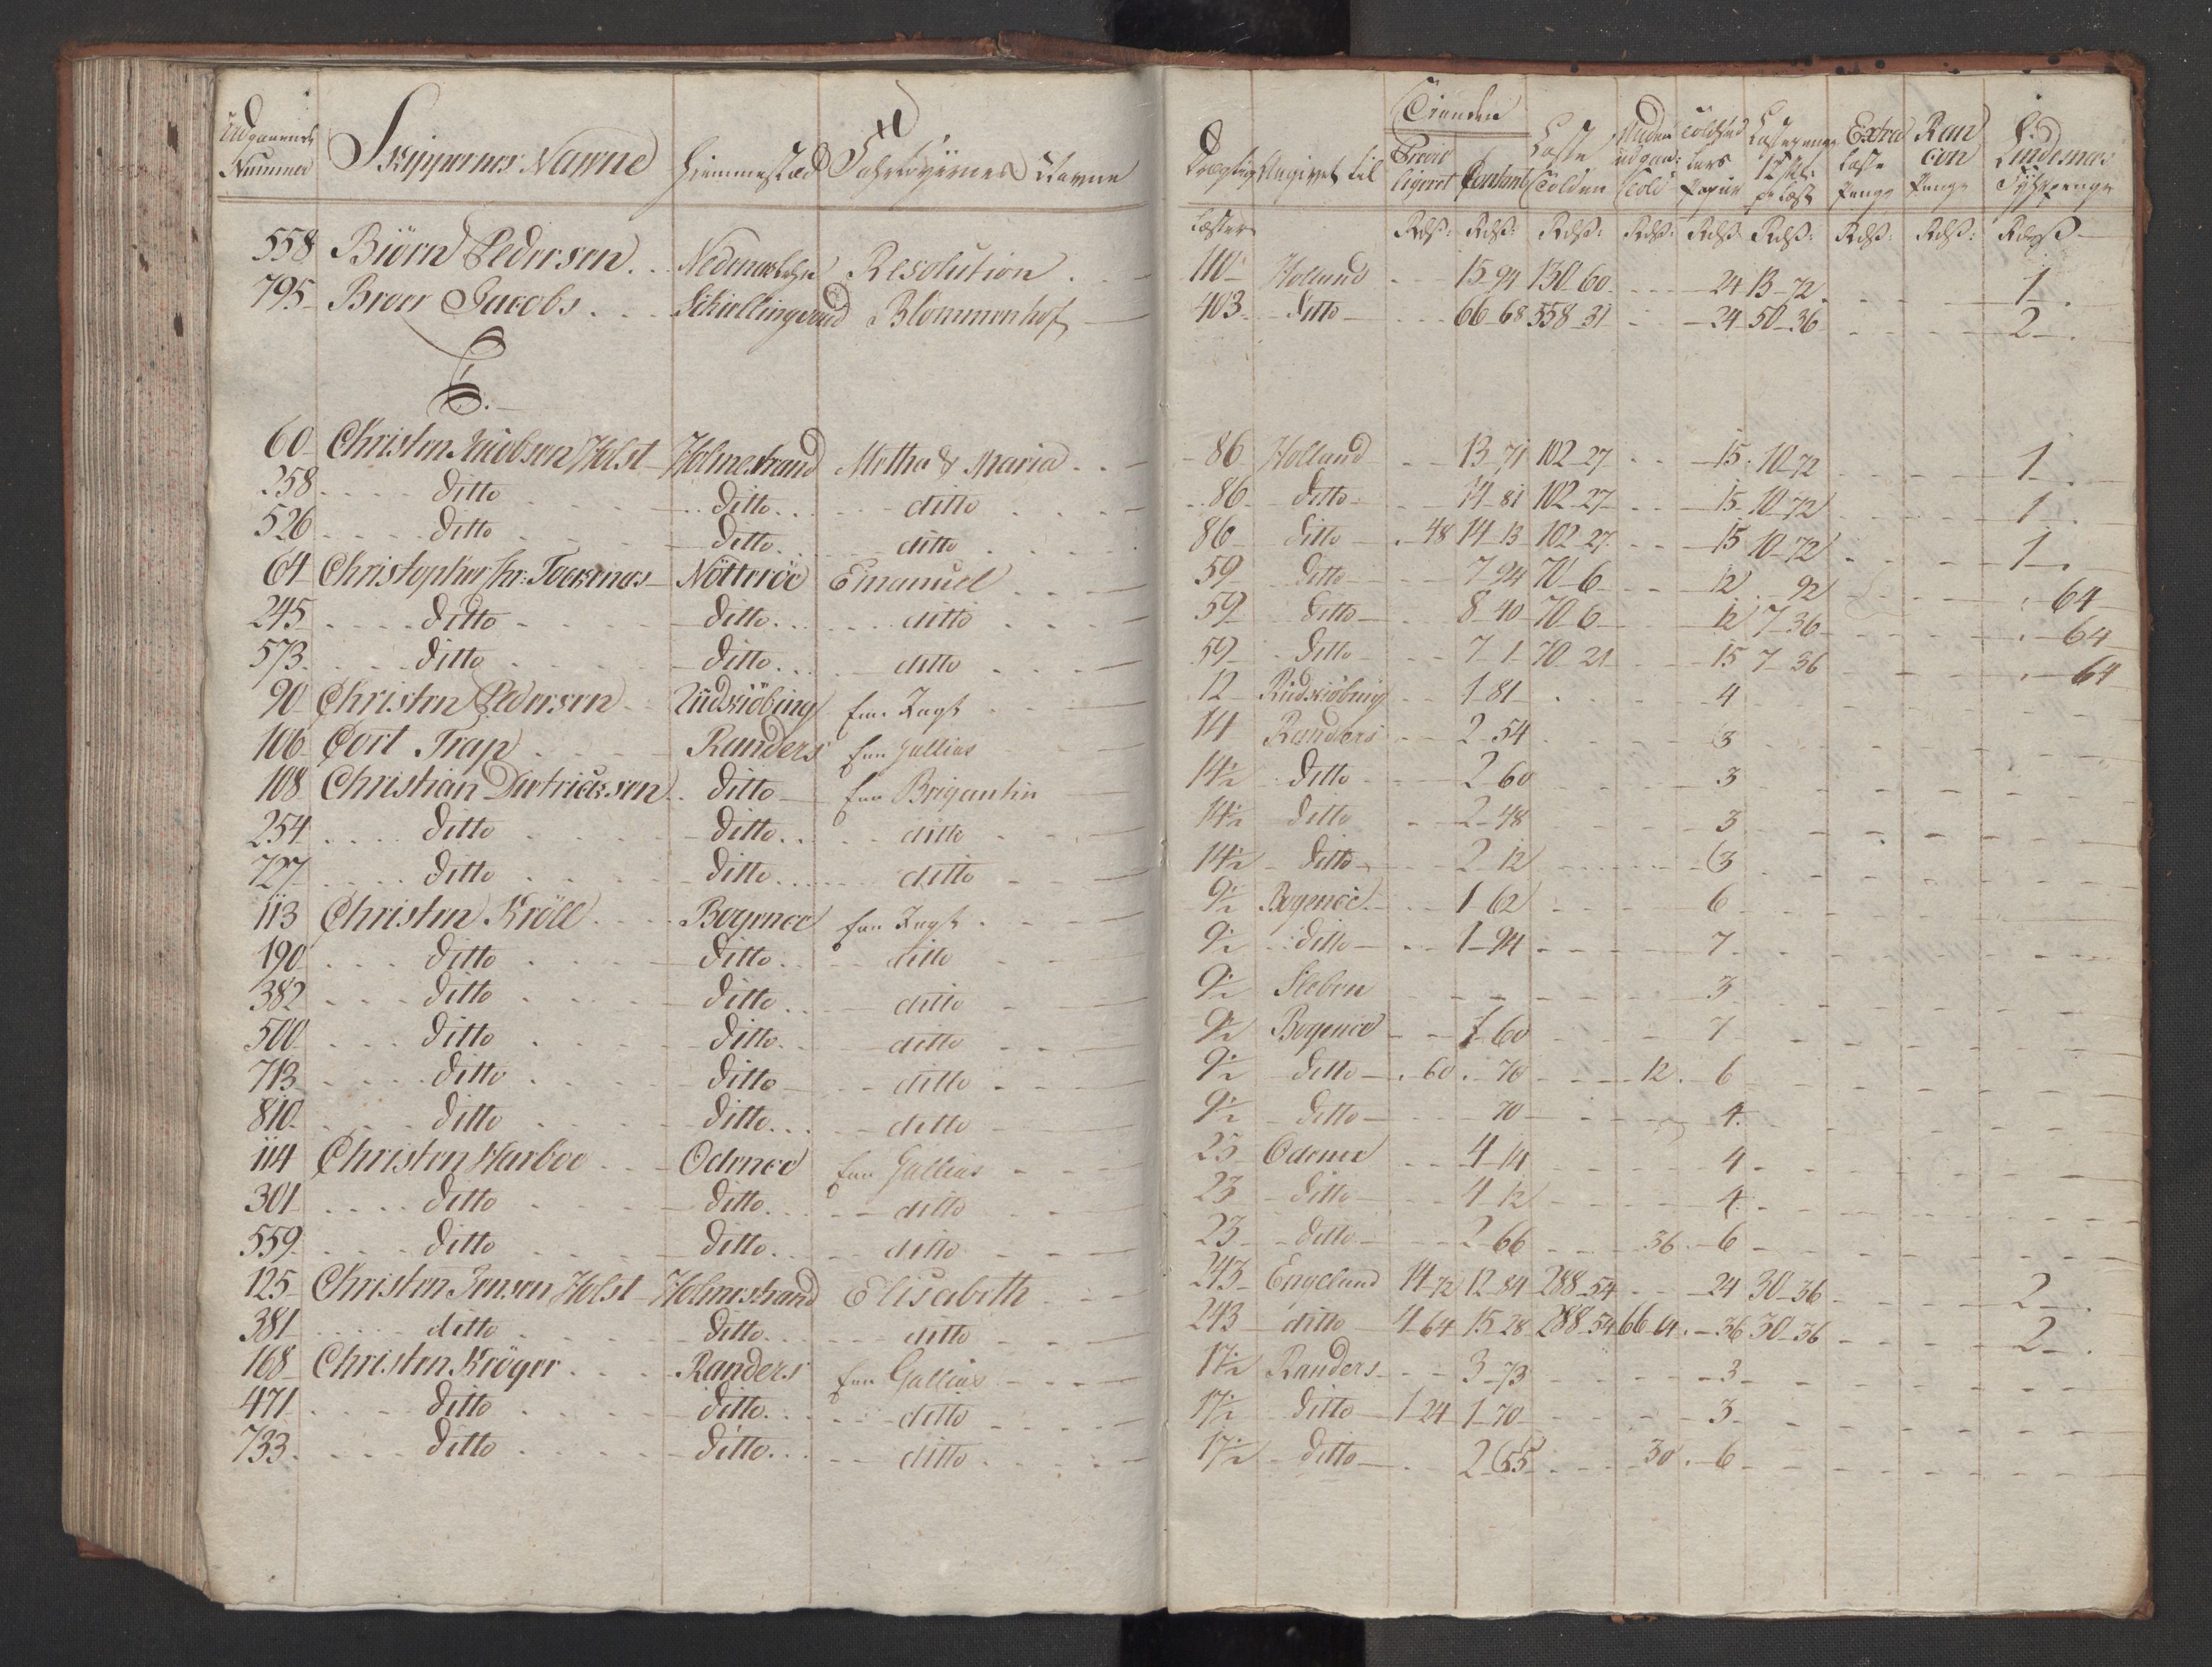 Udgaaende Nummer | Skippernes Navne | Hiemmestæd | Fahrtøyernes Navne | Drægtig | Angivet til | Tienden | Contant | Laste Tolden | Anden udgaa: Told | Extra laste Penge | Ran con Penge | Lindesnæs Fyhrpenge
Læster | Rdß: | Rdß: | Rdß: | Rdß: | Rdß | Rdß: | Rdß: | Rdß: | Rdß
558 Biörn Pedersen Resolution 110 Holland 15-94 130-60 24 13-72 1
795 Broer Jacobs Schellingvoud Blömmenhof 403 ditto 66-68 558-31 24 50-36 2
C.
60 Christen Jacobsen Holst Holmestrand Metha & Maria 86 Holland 13-71 102-27 15 10-72 1
258 ditto ditto ditto 86 ditto 14-81 102-27 15 10-72 1
526 ditto ditto ditto 86 ditto 48 14-13 102-27 15 10-72 1
64 Christopher Nötteröe Emanuel 59 ditto 7-94 70-6 12 92 64
245 ditto ditto ditto 59 ditto 8-40 70-6 12 7-36 64
573 ditto ditto ditto 59 ditto 7-1 70-21 15 7-36 64
90 Christen Pedersen Rudkiöbing Een Jagt 12 Rudkiöbing 1-81 4
106 Cort Trap Randers Een Gallias 14 Randers 2-54 3
108 Christian Dietricksen ditto Een Brigantin 14½ ditto 2-60 3
254 ditto ditto ditto 14½ ditto 2-48 3
727 ditto ditto ditto 14½ ditto 2-12 3
113 Christen Kröll Bogensee Een Jagt 9½ Bogense 1-62 6
190 ditto ditto ditto 9½ ditto 1-94 7
382 ditto ditto ditto 9½ 3
500 ditto ditto ditto 9½ Bogense 1-60 7
713 ditto ditto ditto 9½ ditto 60 76 12 6
810 ditto ditto ditto 9½ ditto 70 4
114 Christen Harboe Odensee Een Gallias 23 Odense 4-14 4
301 ditto ditto ditto 23 ditto 4-12 4
559 ditto ditto ditto 23 ditto 2-66 36 6
125 Christen Jensen Holst Holmestrand Elisabeth 243 Engelland 14-72 12-84 288-54 24 30-36 2
381 ditto ditto ditto 243 ditto 4-64 15-28 288-54 66-64 36 30-36 2
168 Christen Kröger Randers Een Gallias 17½ Randers 3-73 3
471 ditto ditto ditto 17½ ditto 1-24 1-70 3
733 ditto ditto ditto 17½ ditto 2-65 30 6